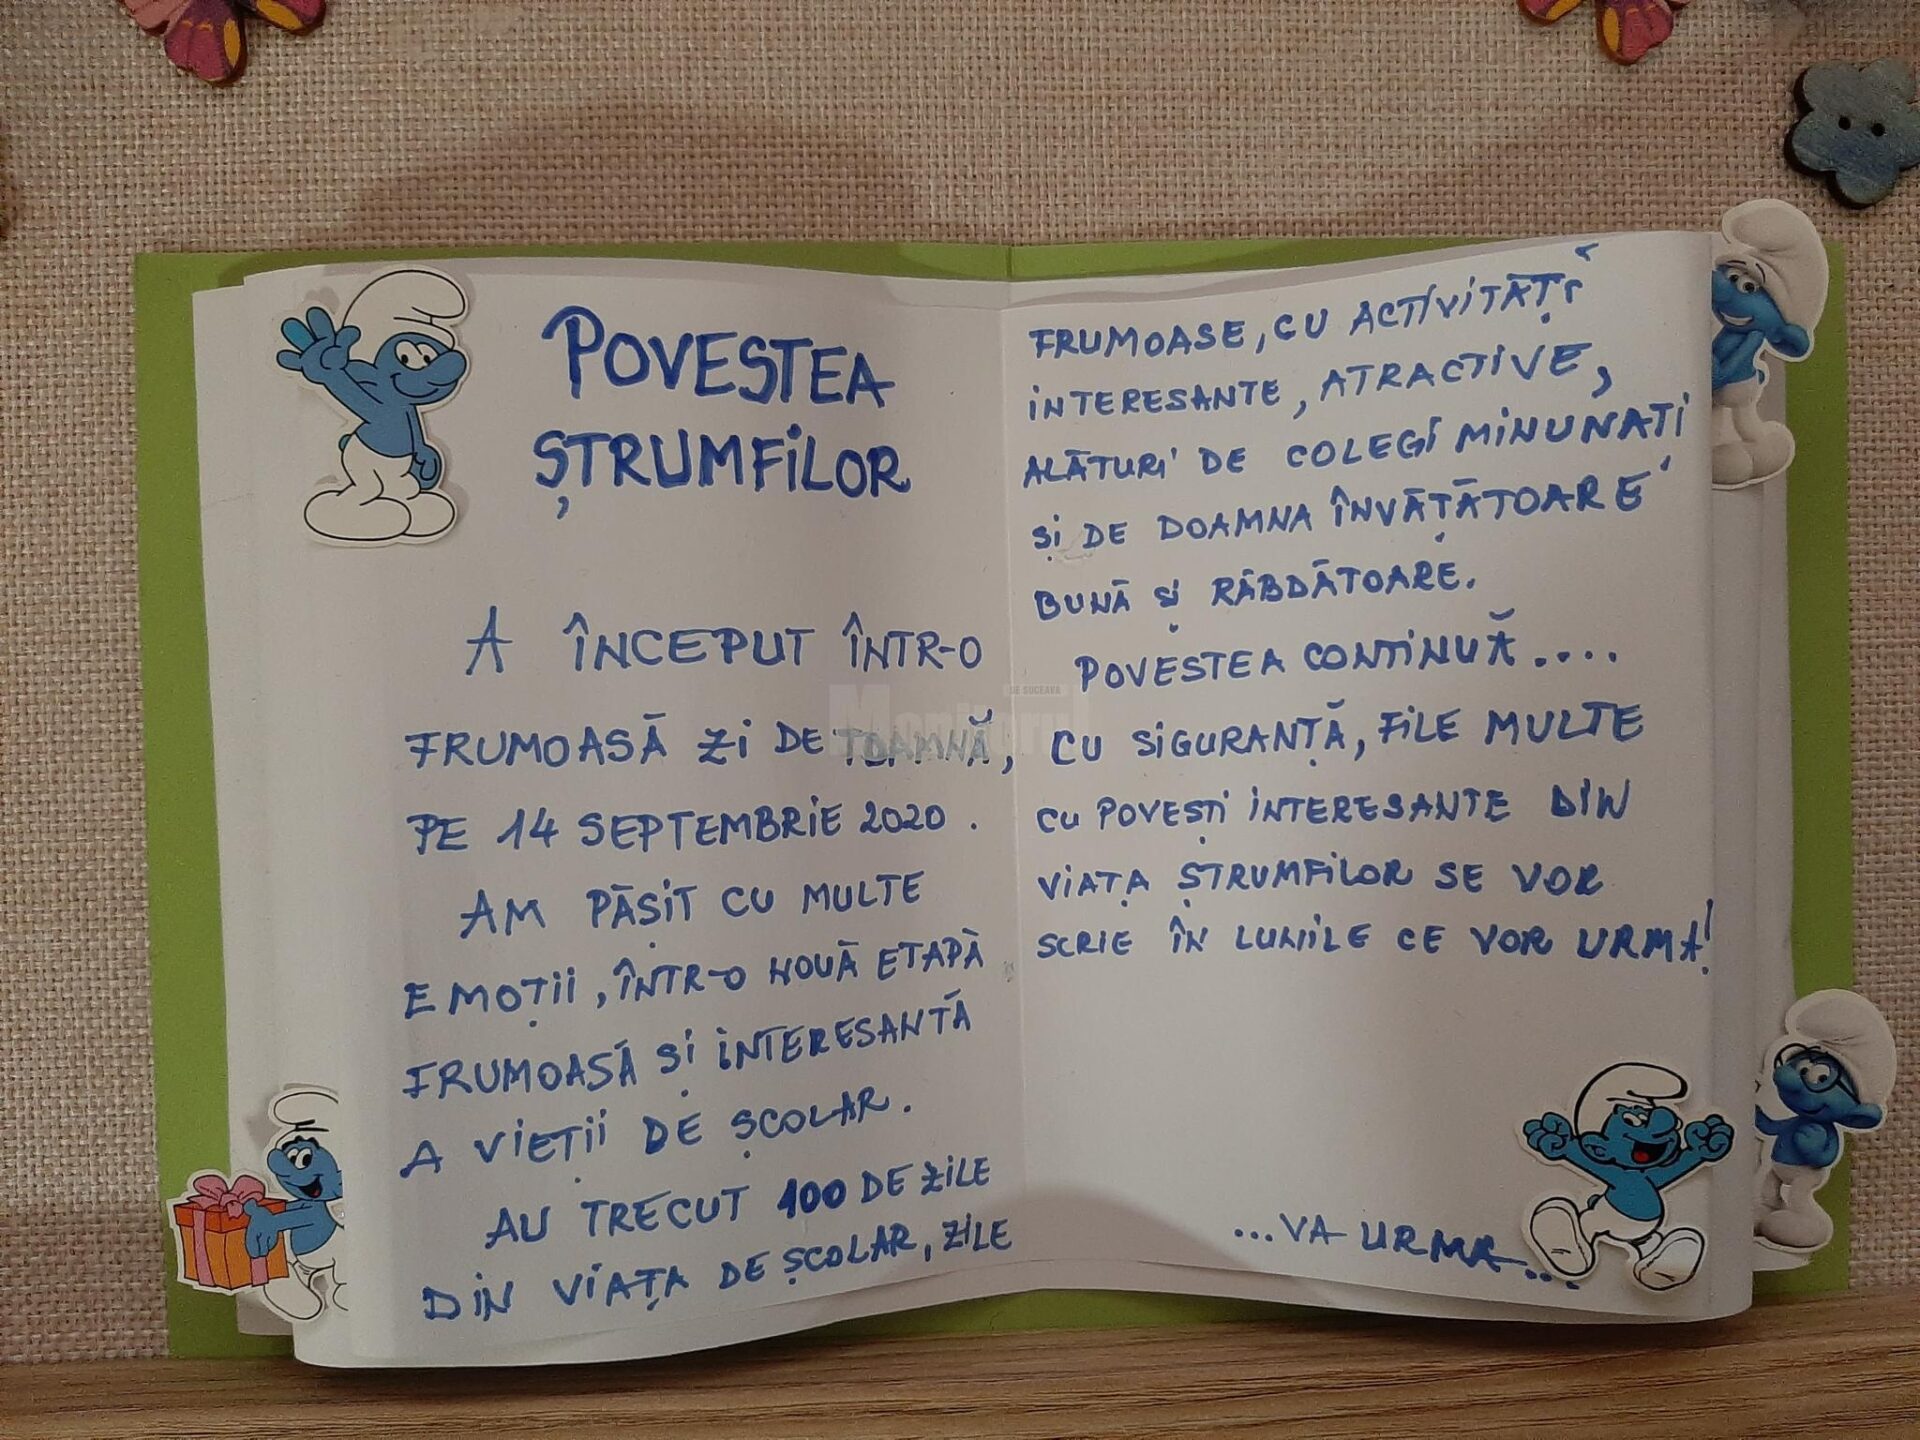 POVESTEA
ȘTRUMFILOR
A ÎNCEPUT ÎNTR-O
FRUMOASĂ ZI DE TOAMNĂ,
PE 14 SEPTEMBRIE 2020.
AM PĂȘIT CU MULTE
EMOȚII, ÎNTR-O NOUĂ ETAPĂ
FRUMOASĂ ȘI INTERESANTĂ
A VIEȚII DE ȘCOLAR.
AU TRECUT 100 DE ZILE
DIN VIAȚA DE ȘCOLAR, ZILE
FRUMOASE, CU ACTIVITĂȚI
INTERESANTE, ATRACTIVE,
ALĂTURI DE COLEGI MINUNAȚI
ȘI DE DOAMNA ÎNVĂȚĂTOARE
BUNĂ ȘI RĂBDĂTOARE.
POVESTEA CONTINUĂ....
CU SIGURANȚĂ, FILE MULTE
CU POVEȘTI INTERESANTE DIN
VIAȚA ȘTRUMFILOR SE VOR
SCRIE ÎN LUNILE CE VOR URMA!
...VA URMA...
Monitorul
DE SUCEAVA